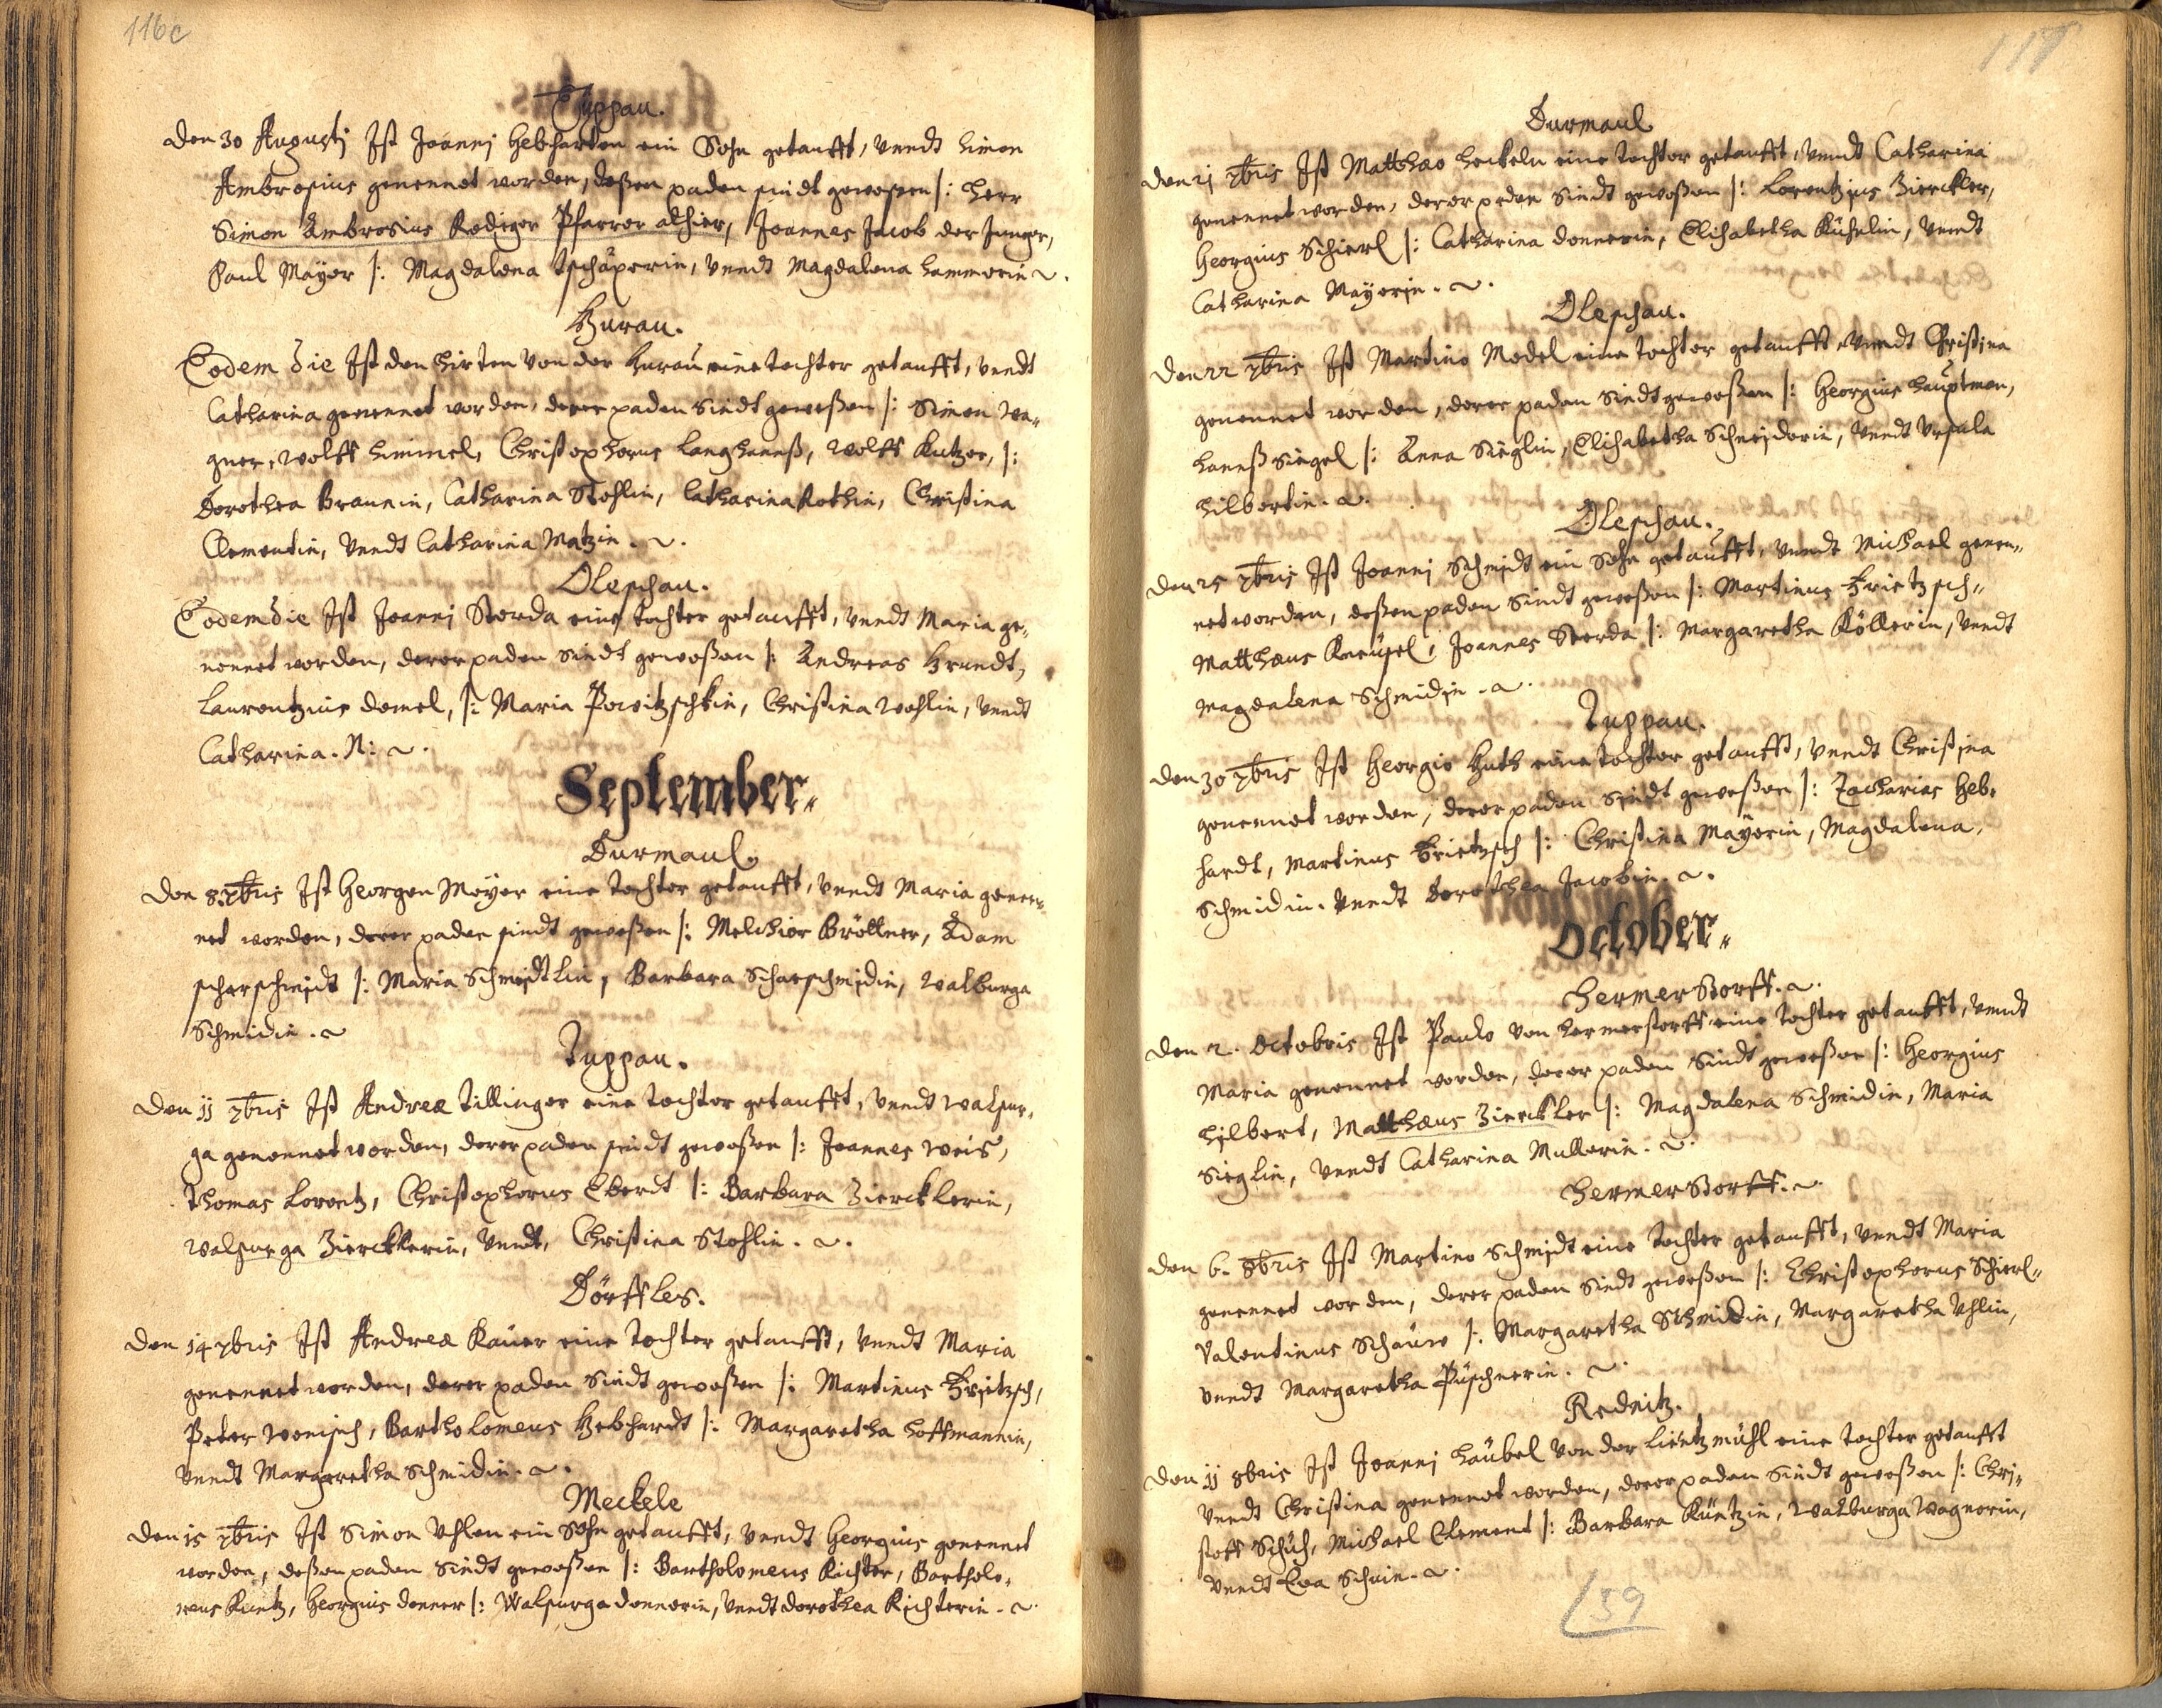 116c
Tuppau.
Den 30 Augustj Ist Joannj Gebharten ein Sohn getaufft, vnndt Simon
Ambrosius genennet worden, deßen paden sindt geweßen |: Herr
Simon Ambrosius Rediger Pfarrer alhier, Joannes Jacob der Junger,
Paul Mayer |: Magdalena Tschäperin, vnndt Magdalena Hammerin ~.
Hurau.
Eodem die Ist den Hirten von der Hurau eine tochter getaufft, vnndt
Catharina genennet worden, derer paden Sindt geweßen |: Simon Wa-
gner, Wolff Himmel, Christophorus Langhannß, Wolff Kutzer, |:
Dorothea Braunin, Catharina Stohlin, Catharina Rothin, Christina
Clementin, vnndt Catharina Matzin. ~.
Oleschau.
Eodem die Ist Joannj Storda eine tochter getaufft, vnndt Maria ge-
nennet worden, derer paden Sindt geweßen |: Andreas Grundt,
Laurentzius Demel, |: Maria Powitzschkin, Christina Wohlin, vnndt
Catharina. N: ~.
September.
Durmaul.
Den 8. 7bris Ist Georgen Moyer eine tochter getaufft, vnndt Maria genen-
net worden, derer paden sindt geweßen |: Melchior Bröllner, Adam
scharschmidt |: Maria Schmidtlin, Barbara Scharschmidin, Walburga
Schmidin. ~
Tuppau.
Den jj 7bris Ist Andreæ Tillinger eine tochter getaufft, vnndt Walpur-
ga genennet worden, derer paden sindt geweßen |: Joannes Weiß,
Thomas Lorentz, Christophorus Ebert |: Barbara Zierckhlerin,
Walpurga Zierckhlerin, vnndt, Christina Stohlin. ~.
Dörffles.
Den 14 7bris Ist Andreæ Kauer eine tochter getaufft, vnndt Maria
genennet worden, derer paden Sindt geweßen |: Martinus Fritzsch,
Peter Wonisch, Bartholomeus Gebhardt |: Margaretha Hoffmannin,
vnndt Margaretha Schmidin. ~.
Meckele
Den 15 7bris Ist Simon Vhlen ein Sohn getaufft, vnndt Georgius genennet
worden, deßen paden Sindt geweßen |: Bartholomeus Richter, Bartholo-
meus Kuntz, Georgius Donner |: Walpurga Donnerin, vnndt Dorothea Richterin. ~.
117
Durmaul
Den 21 7bris Ist Matthæo Heckeln eine tochter getaufft, vnndt Catharina
genennet worden, derer paden Sindt geweßen |: Lorentzius Zierckler,
Georgius Schierl |: Catharina Donnerin, Elisabetha Kühnlin, vnndt
Catharina Mayerin. ~.
Oleschau.
Den 22 7bris Ist Martino Model eine tochter getaufft vnndt Christina
genennet worden, derer paden Sindt geweßen |: Georgius Hauptman,
Hannß Siegel |: Anna Sieglin, Elisabetha Schneiderin, vnndt Vrsula
Hilbertin. ~.
Oleschau.
Den 25 7bris Ist Joannj Schmidt ein Sohn getaufft, vnndt Michael genen-
net worden, deßen paden Sindt geweßen |: Martinus Frietzsch-
Matthæus Kreußel, Joannes Storda |: Margaretha Köllerin, vnndt
Magdalena Schmidin. ~.
Tuppau.
Den 30 7bris Ist Georgio Huth eine tochter getaufft, vnndt Christina
genennet worden, derer paden Sindt geweßen |: Zacharias Geb-
hardt, Martinus Frietzsch |: Christina Mayerin, Magdalena,
Schmidin. vnndt Dorothea Jacobin. ~.
October.
HermerStorff. ~.
Den 2. Octobris Ist Paulo von Hermerstorff eine tochter getaufft, vnndt
Maria genennet worden, derer paden Sindt geweßen |: Georgius
Hilbert, Matthæus Zierckler |: Magdalena Schmidin, Maria
Sieglin, vnndt Catharina Mullerin. ~.
HermerStorff. ~.
Den 6. 8bris Ist Martino Schmidt eine tochter getaufft, vnndt Maria
genennet worden, derer paden Sindt geweßen |: Christophorus Schierl-
Valentinus Schauer |: Margaretha Schmidin, Margaretha Vhlin,
vnndt Margaretha Püschnerin. ~.
Rednitz.
Den jj 8bris Ist Joannj Häubel von der Lientzmühl eine tochter getaufft
vnndt Christina genennet worden, derer paden Sindt geweßen |: Chri-
stoff Schuh, Michael Clement |: Barbara Küntzin, Walburga Wagnerin,
vnndt Eva Schuin. ~.
59